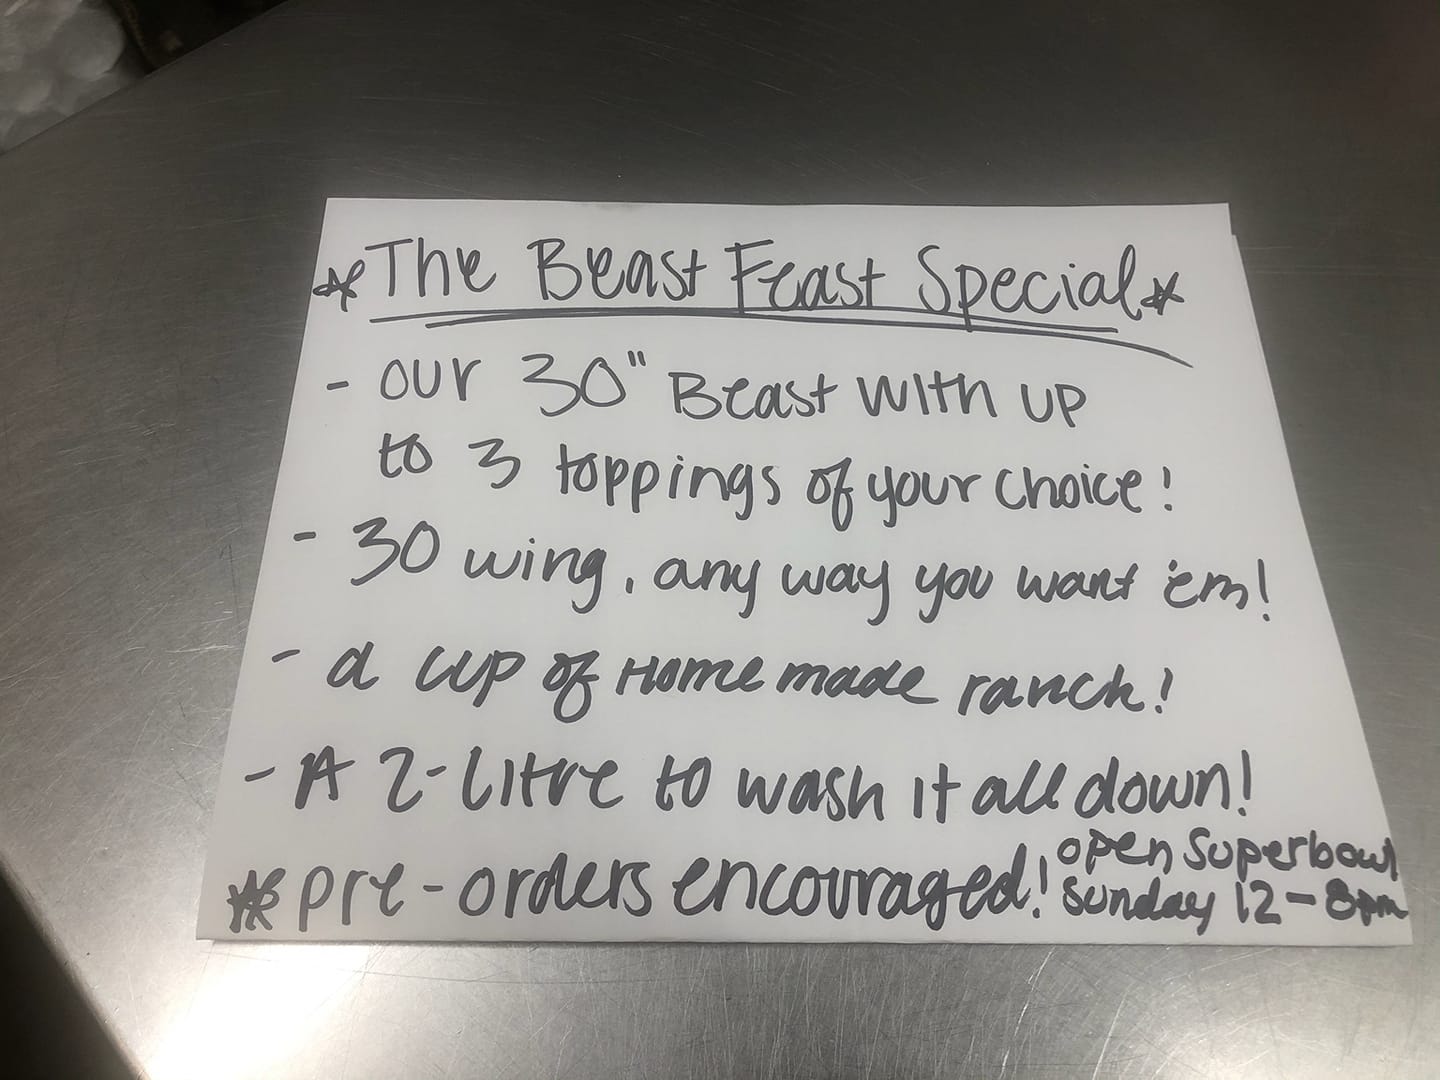 *The Beast Feast Special*
- our 30" Beast with up
to 3 toppings of your choice!
- 30 wing, any way you want 'em!
- a cup of Homemade ranch!
- A 2-Litre to wash it all down!
*pre-orders encouraged!
open Superbowl
Sunday 12-8pm